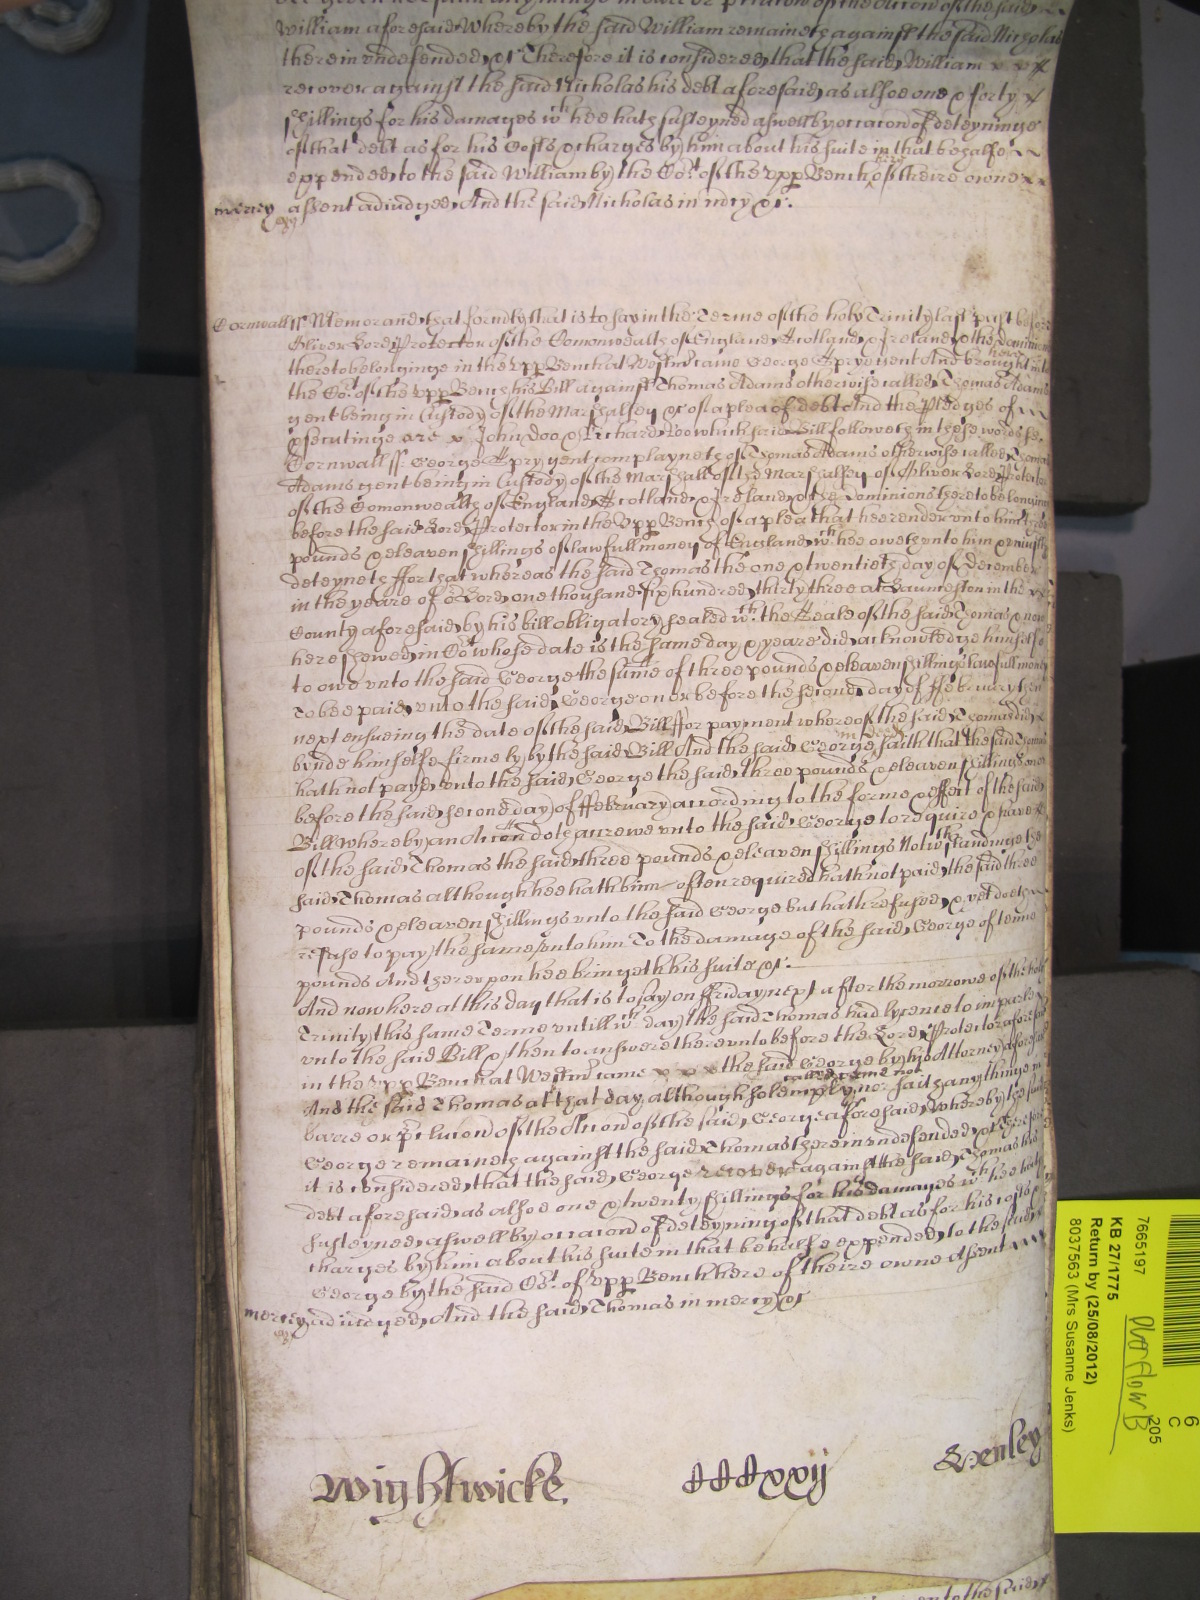 William aforesaid Whereby the said William remaineth against the said Nicholas
therein undefended &c Therefore it is considered that the said William
recover against the said Nicholas his debt aforesaid as alsoe one & forty
shillings for his damages wch hee hath susteyned aswell by occacon of deteyninge
of that debt as for his Costs & charges by him about his suite in that behalfe
expended to the said William by the Cot of the upp Bench here of theire owne
mercy assent adiudged And the said Nicholas in mcy &c.
Cornwall ss Memorand that formly that is to say in the Terme of the holy Trinity last past before
Oliver Lord Protector of the Comonwealth of England Scotland & Ireland & the Dominions
thereto belonginge in the upp Bench at Westmr came George Spry gent And brought here into
the Cot of the upp Bench his Bill against Thomas Adams otherwise called Thomas Adams
gent being in Custody of the Marshalsey &c of a plea of debt And the Pledges of
psecutinge are John Doo & Richard Roo which said Bill followeth in these words ss.
Cornwall ss: George Spry gent complayneth of Thomas Adams otherwise called Thomas
Adams gent being in Custody of the Marshall of the Marshalsey of Oliver Lord Protector
of the Comonwealth of England Scotland & Ireland & the Dominions thereto belonginge
before the said Lord Protector in the Upp Bench of a plea that hee render unto him three
pounds & eleaven shillings of lawfull money of England wch hee oweth unto him & uniustly
deteyneth ffor that whereas the said Thomas the one & twentieth day of December
in the yeare of or Lord one thousand six hundred thirty three at Launceston in the
County aforesaid by his bill obligatory sealed wth the Seale of the said Thomas & now
here shewed in Cot whose date is the same day & yeare did acknowledge himselfe
to owe unto the said George the sume of three pounds & eleaven shillings lawfull money
To bee paid unto the said George on or before the second day of ffebruary then
next ensueing the date of the said Bill ffor payment whereof the said Thomas did
bynde himselfe firmely by the said Bill And the said George in deed saith that the said Thomas
hath not payd unto the said George the said three pounds & eleaven shillings on or
before the said second day of ffebruary according to the forme & effect of the said
Bill whereby an Accon doth accrewe unto the said George to require & have
of the said Thomas the said three pounds & eleaven shillings Notwthstandinge the
said Thomas although hee hath binn often required hath not paid the said three
pounds & eleaven shillings unto the said George but hath refused & yet doeth
refuse to pay the same unto him To the damage of the said George of tenne
pounds And thereupon hee bringeth his suite &c.
And now here at this day that is to say on ffriday next after the morrowe of the holy
Trinity this same Terme untill wch day the said Thomas had lycence to imparle
unto the said Bill & then to answere thereunto before the Lord Protector aforesaid
in the upp Bench at Westmr came the said George by his Attorney aforesaid
And the said Thomas at that day although solemply called came not nor saith anythinge in
barre or pclucon of the Accon of the said George aforesaid Whereby the said
George remaineth against the said Thomas therein undefended &c Therefore
it is considered that the said George recover against the said Thomas his
debt aforesaid as alsoe one & twenty shillings for his damages wch hee hath
susteyned aswell by occacon of deteyning of that debt as for his costs &
charges by him about his suite in that behalfe expended to the said
George by the said Cot of upp Bench here of theire owne Assent
mercy adiudged And the said Thomas in mercy &c
Wightwicke
Henley
unto the said
7665197
KB 27/1775
Return by (25/08/2012)
8037563 (Mrs Susanne Jenks)
overflow B
205
6
C